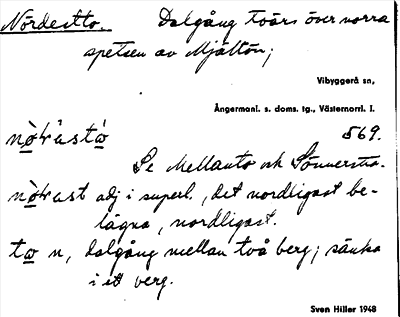 Nordestto. Dalgång tvärs över norra
spetsen av Mjältön;
Vibyggerå sn,
Ångermanl. s. doms. tg., Västernorrl. l.
569.
Se Mellanto och Sönnersta-
adj i superl., det nordligast be-
lägna, nordligast.
n, dalgång mellan två berg; sänka
i ett berg.
Sven Hiller 1948